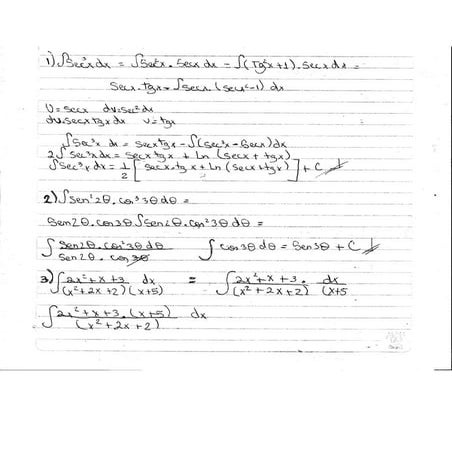 1) ∫Sec³x dx = ∫Sec²x . Secx dx = ∫(Tg²x+1) . secx dx =
Secx . tgx - ∫secx (sec²-1) dx
U = secx dv = sec² dx
du = secx tgx dx v = tgx
∫Sec³x dx = secx tgx - ∫(sec³x - Secx) dx
2∫sec³x dx = secx tgx + Ln (secx + tgx)
∫Sec³x dx = 1/2 [secx . tgx + Ln (secx + tgx)] + C
2) ∫Sen²2θ . cos³3θ dθ =
Sen2θ . cos3θ ∫Sen2θ . cos²3θ dθ =
∫ Sen2θ . cos²3θ dθ / Sen2θ . cos3θ ∫ cos3θ dθ = Sen3θ + C
3) ∫ 2x²+x+3 / (x²+2x+2)(x+5) dx = ∫ 2x²+x+3 / (x²+2x+2) . dx / (x+5
∫ 2x²+x+3 . (x+5) / (x²+2x+2) dx